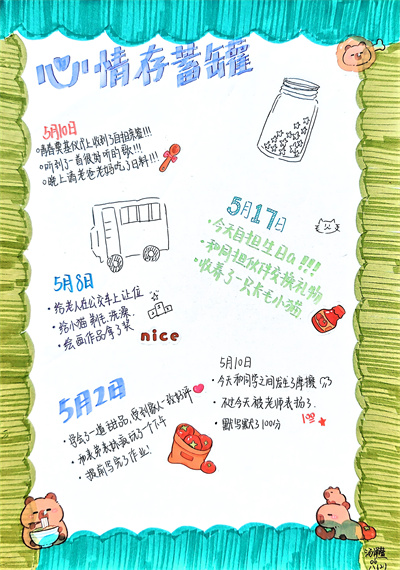 心情存蓄罐
5月10日
听到了一首很好听的歌!!!
晚上请老爸老妈吃了日料!!!
5月17日
今天自担生日a!!!
和同担欣仔交换礼物
收养了一只卡毛小猫
5月8日
给老人在公交车上让位
给小猫剃毛、洗澡
绘画作品拿了奖
nice
5月2日
学会了一道甜品,受到家人一致好评
和表弟表格疯玩了一个下午
提前写完了作业
5月10日
今天和同学之间发生了摩擦
不过今天被老师表扬了
默写默了100分
100